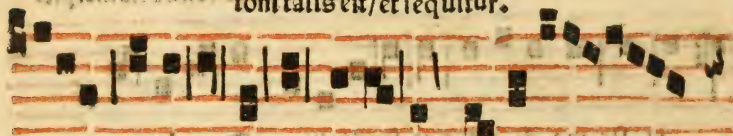 toni talis est/ et sequitur.